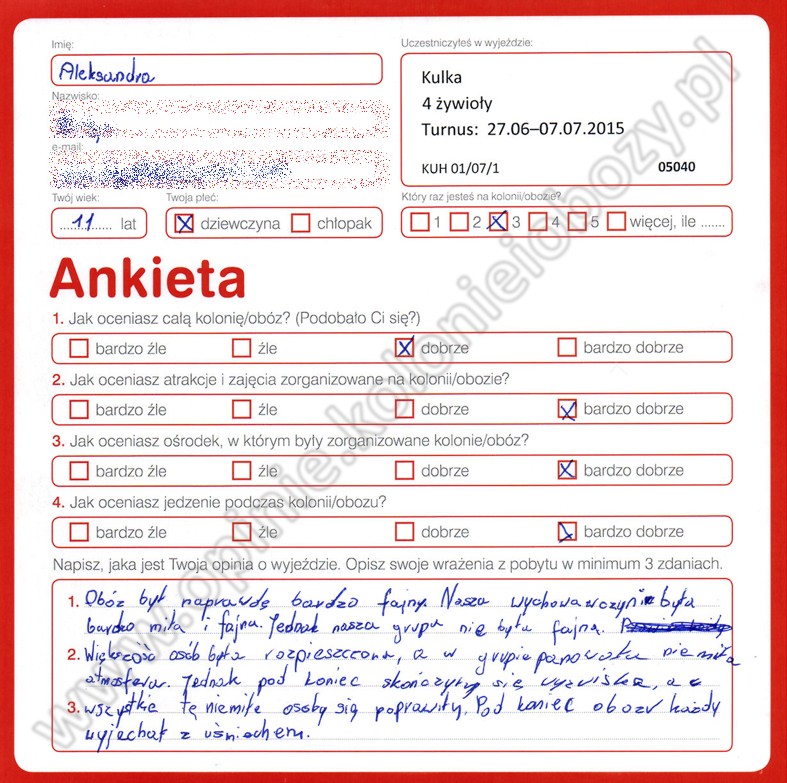 Imię:
Uczestniczyłeś w wyjeździe:
Aleksandra
Kulka
4 żywioły
Turnus: 27.06–07.07.2015
KUH 01/07/1 05040
Nazwisko:
e-mail:
Twój wiek: Twoja płeć: Który raz jesteś na kolonii/obozie?
11 lat dziewczyna chłopak 1 2 3 4 5 więcej, ile .......
Ankieta
1. Jak oceniasz całą kolonię/obóz? (Podobało Ci się?)
bardzo źle źle dobrze bardzo dobrze
2. Jak oceniasz atrakcje i zajęcia zorganizowane na kolonii/obozie?
bardzo źle źle dobrze bardzo dobrze
3. Jak oceniasz ośrodek, w którym były zorganizowane kolonie/obóz?
bardzo źle źle dobrze bardzo dobrze
4. Jak oceniasz jedzenie podczas kolonii/obozu?
bardzo źle źle dobrze bardzo dobrze
Napisz, jaka jest Twoja opinia o wyjeździe. Opisz swoje wrażenia z pobytu w minimum 3 zdaniach.
1. Obóz był naprawdę bardzo fajny. Nasza wychowawczyni była
bardzo miła i fajna. Jednak nasza grupa nie była fajna.
2. Większość osób była rozpieszczona, a w grupie panowała nie miła
atmosfera. Jednak pod koniec skończyły się wyzwiska, a
3. wszystkie te niemiłe osoby się poprawiły. Pod koniec obozu każdy
wyjechał z uśmiechem.
www.opinie.kolonieiobozy.pl